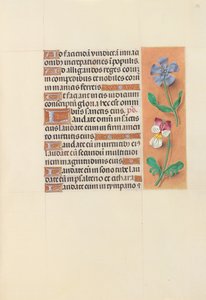 Ad faciendā vindictā in nati
onib increpationes ī populis.
Ad alligandos reges eorū
in compedib et nobiles eorū
in manicis ferreis
Ut faciant in eis iudicium
conscriptū gloria hec est omni
bus sanctis eius.
Laudate dnm in sanctis
eius laudate eum in firmamen
to virtutis eius.
Laudate eū in virtutib ei
laudate eū secundū multitudi
nem magnitudinis eius
Laudate eū in sono tube lau
date eū in psalterio et cithara
Laudate eum in tympano et